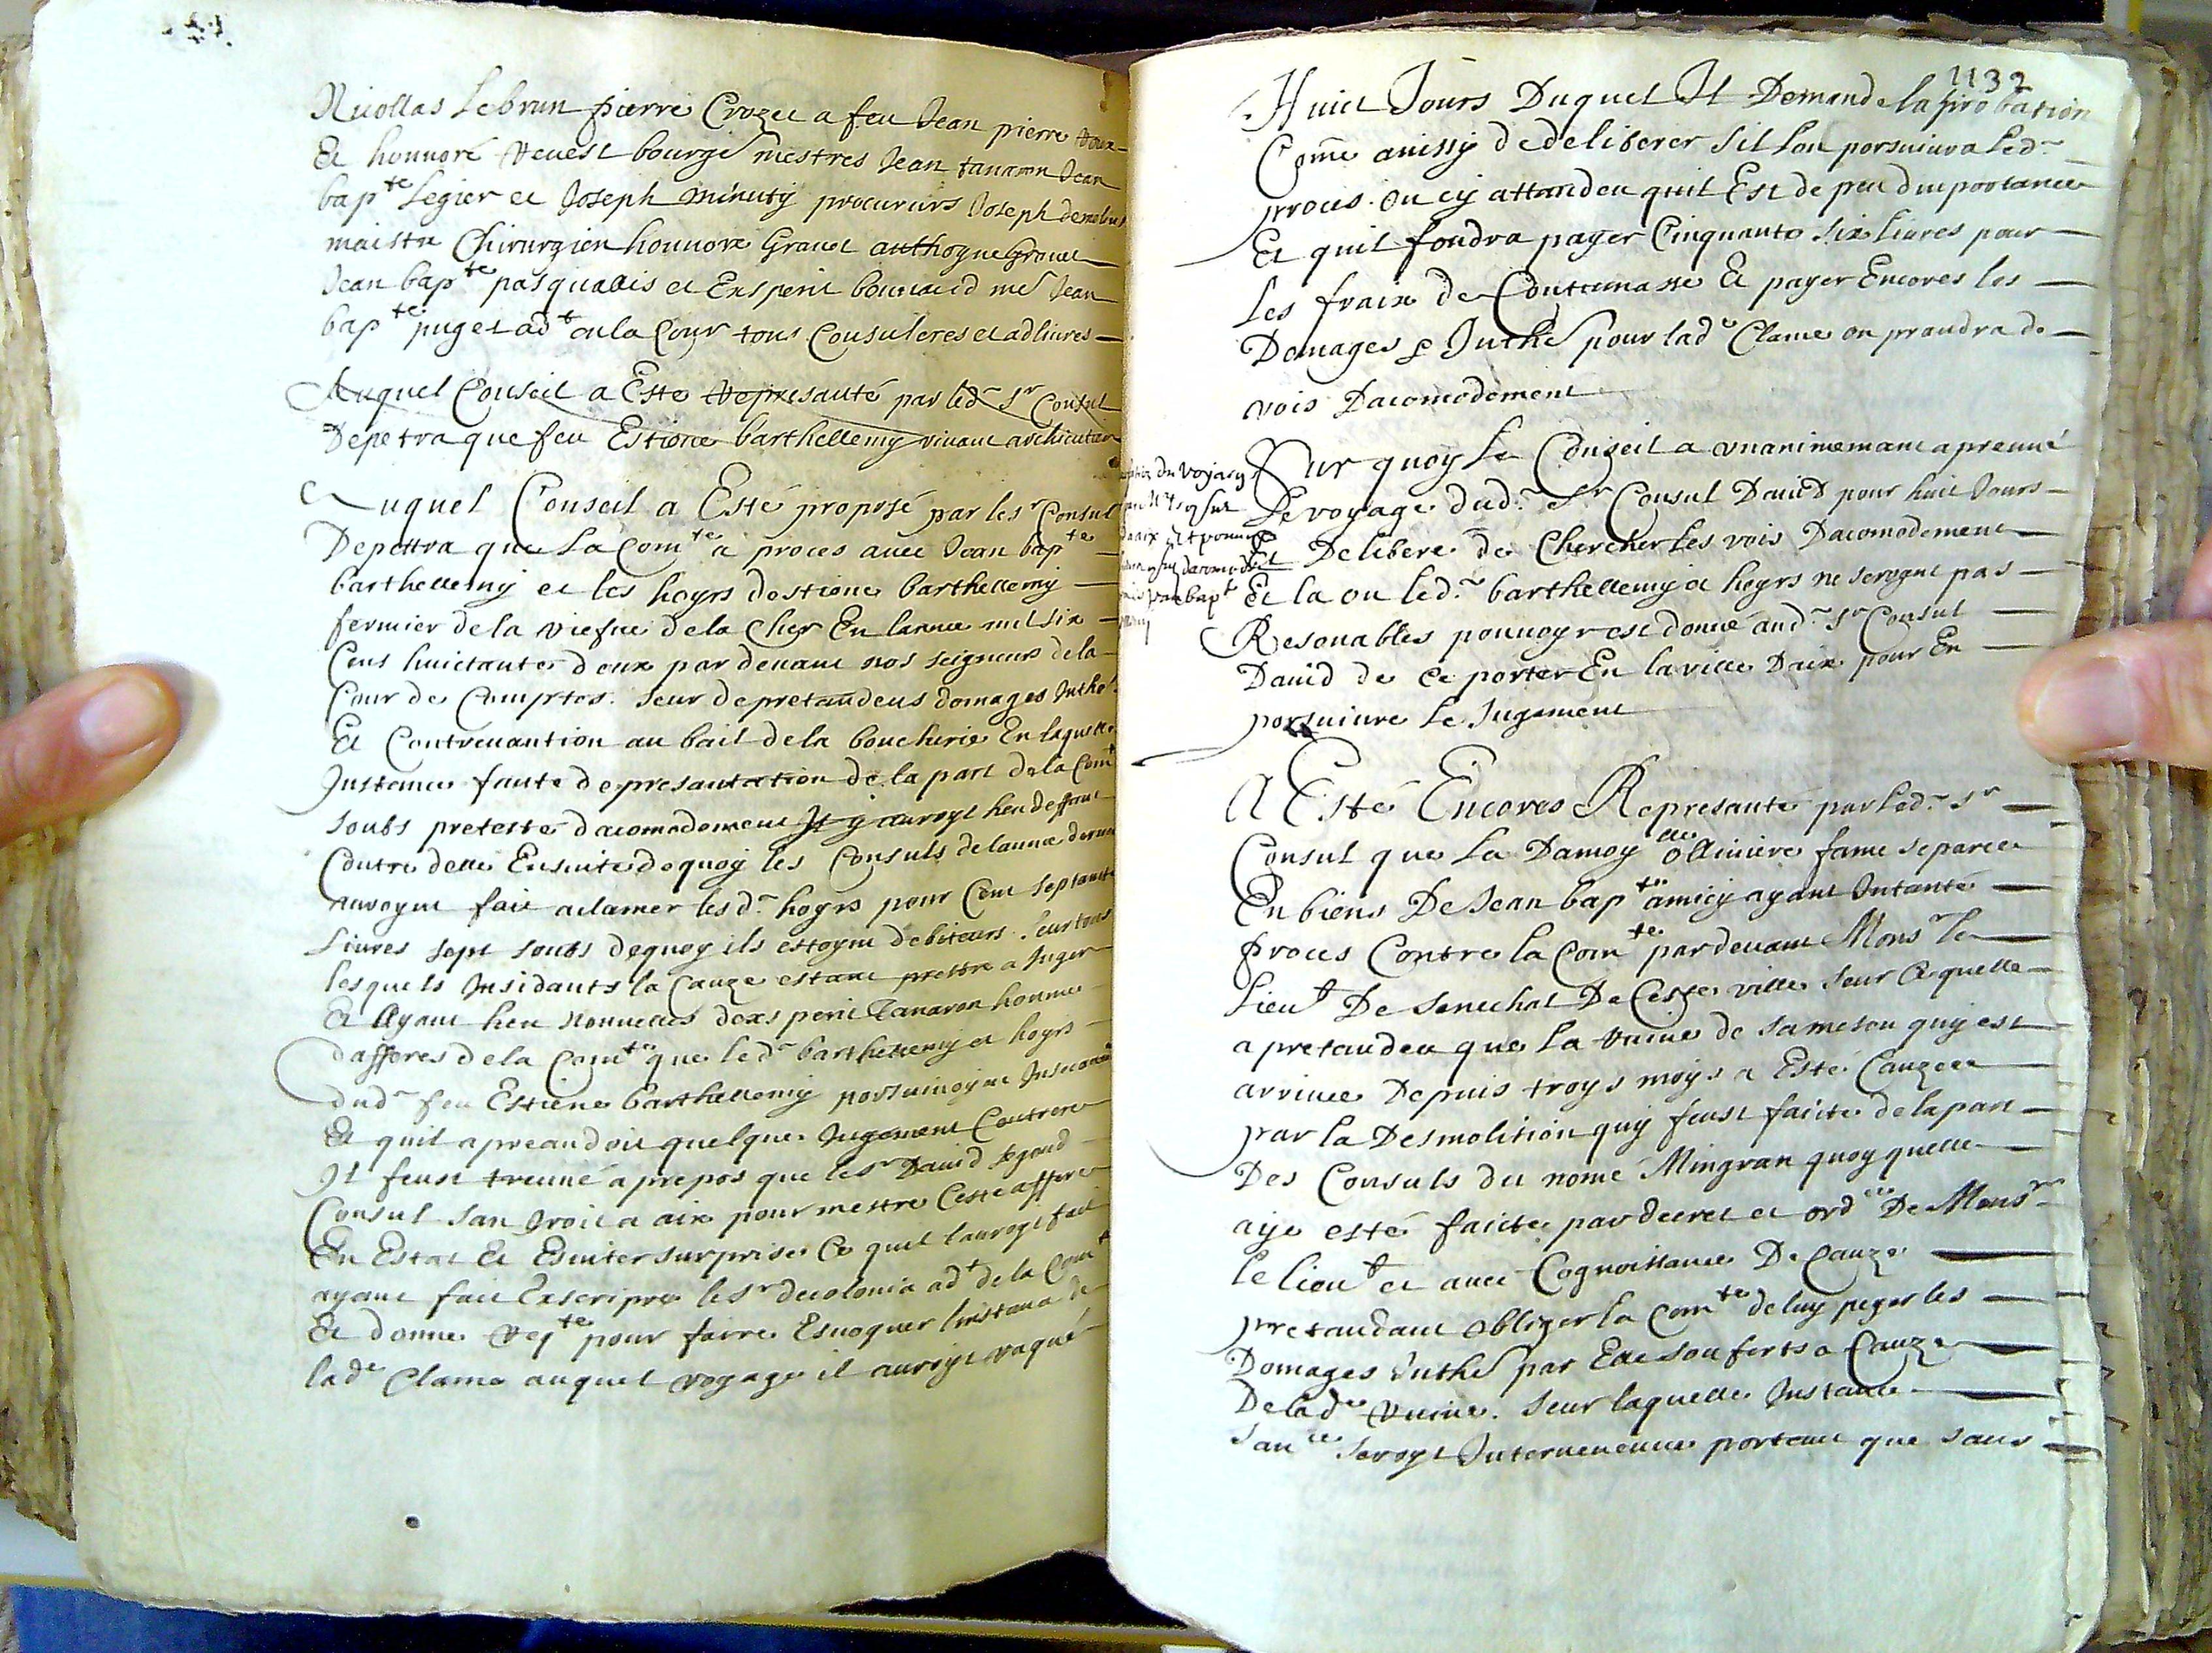 Nicollas Lebrun pierre Crozet a feu Jean pierre
Et honnoré bourgs mestres Jean tanaron Jean
bapte Legier et Joseph minuty procururs Joseph
maistre Chirurgien honnore Gravet anthogne Gravet
Jean bapte pasquallis et Exsperit me Jean
bapte puget adt en la Cour tous Consuleres et
Auquel Conseil a Este represanté par ledt sr Consul
Depetra que feu Estiene barthellemy vivant
Auquel Conseil a Esté proposé par le sr Consul
Depettra que La Comte a proces avec Jean bapte
barthellemy et les hoyrs destiene barthellemy
fermier de la viefve de la Cher En lannee mil six
Cens huictante deux par devant nos seigneurs de la
Cour de Comptes. seur de pretandeus domages Inthes
Et Contrevantion au bail de la boucherie En laquelle
Instance faute de presantation de la part de la Comte
soubs preteste dacomodement Il y auroyt heu deffaut
Contre delle Ensuite de quoy les Consuls de lannee
auroynt faict aclamer lesdt hoyrs pour Cent septante
Livres sept soubs de quoy ils estoynt debiteurs. seur tous
lesquels Insidants la Cauze estant prestre a Juger
Et Ayant heu nouvelles dexsperit Tanaron homme
dafferes de la Comte que ledt barthellemy et hoyrs
dudt feu Estiene barthellemy
Et quil apreandoit quelque Jugement Contrere
Il feust treuvé a prepos que le sr David segond
Consul san Iroit a aix pour mestre Ceste affere
En Estat Et Esviter surprise Ce quil lauroyt fait
ayant fait Exscripre le sr decolonia adt de la Comt
Et donne reqte pour faire Esvoquer linstance de
lade Clame auquel voyage il auroyt vaqué
1132
Huict Jours Duquel Il Demande laprobation
Come aussy de deliberer sil lon porsuivra ledt
proces. ou cy attandeu quil Est de peu dinportance
Et quil foudra payer Cinquante six livres pour
les fraix de Contumasse Et payer Encores les
Domages e Inthes pour lade Clame on prandra de
vois Dacomodement
Sur quoy Le Conseil a vnanimemant apreuvé
Le voyage dudt Sr Consul David pour huit Jours
Et Delibere de Chercher les vois Dacomodement
Et la ou ledt barthellemy et hoyrs ne seroynt pas
Resonables pouvoyr est donné audt sr Consul
David de ce porter En la ville Daix pour En
porsuivre le Jugement
A Esté Encores Represanté par ledt sr
Consul que La Damoylle ollivière fame separee
En biens De Jean bapte amicy ayant Intanté
proces Contre la Comte par devant Monsr le
Lieut De Senechal De Ceste ville seur Cequelle
a pretandeu que la ruine de sa meson quy est
arrivee Depuis troys moys a Esté Cauzee
par la Desmolition quy feust faicte de la part
Des Consuls du nomé Mingran quoy quelle
aye esté faicte par decret et ordce De Monsr
le lieut et avec Cognoissance De Cauze
pretandant obliger la Comte de luy peyer les
Domages Inthes par Elle souferts a Cauze
De lade ruine. seur laquelle Instance
sance seroyt Intervenenue portant que sans